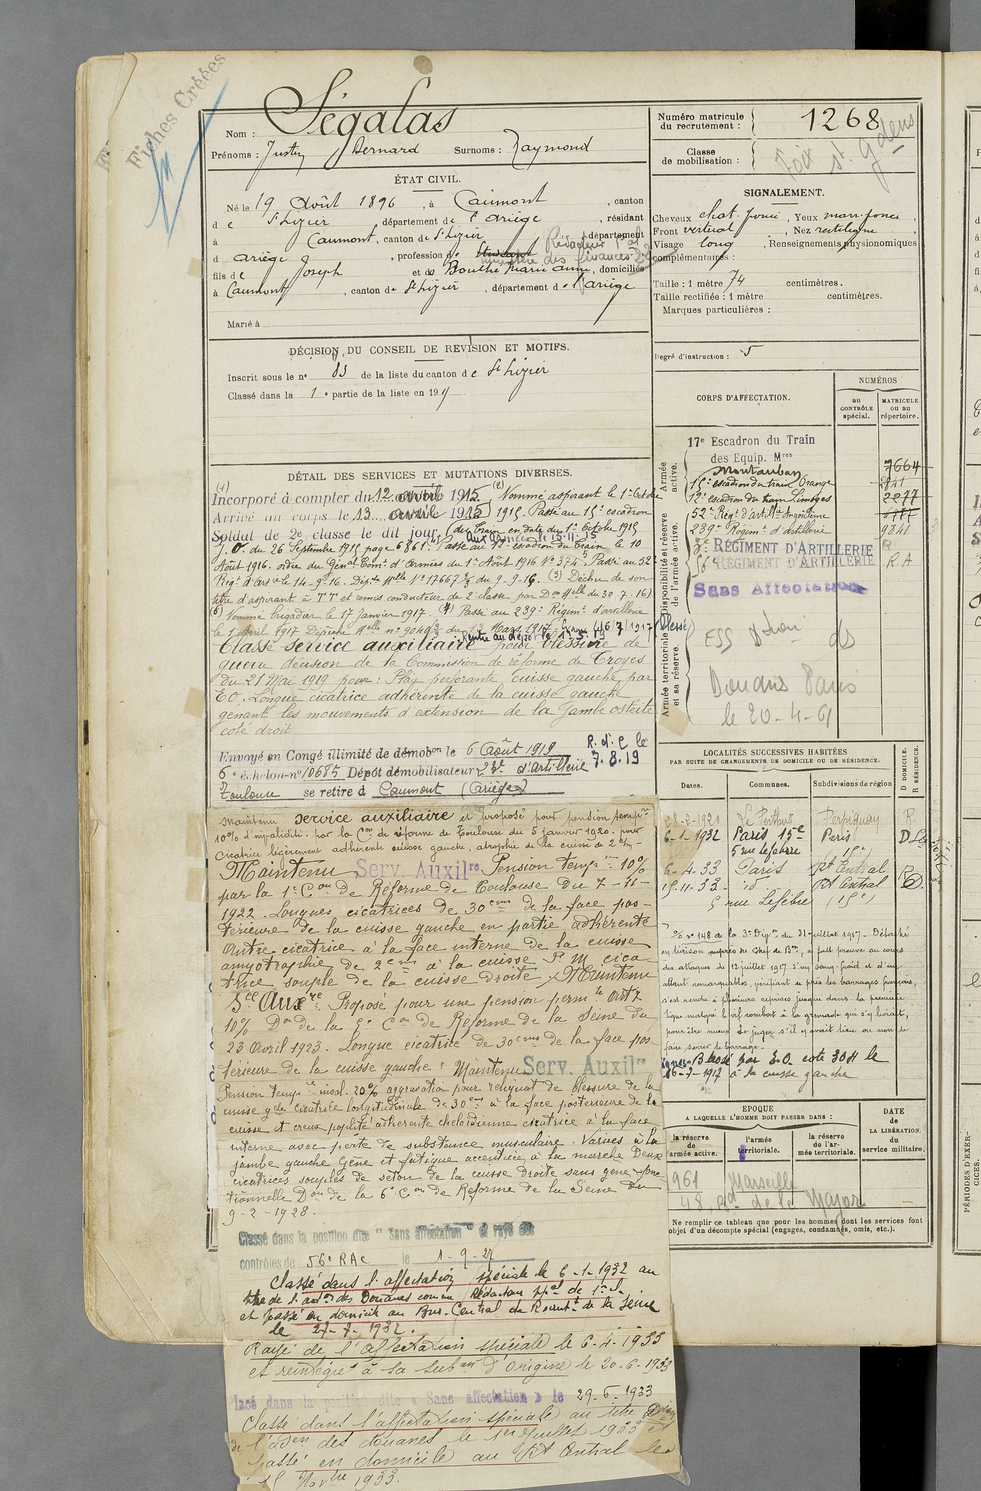 Fiches Créées
Nom : Ségalas
Prénoms : Justin Bernard Surnoms : Raymond
Numéro matricule du recrutement : 1268
Classe de mobilisation :
Foix St. Gdens
ÉTAT CIVIL.
Né le 19 Août 1896, à Caumont, canton
de St Lizier, département de l'Ariège, résidant
à Caumont, canton de St Lizier, département
d Ariège, profession de
ministère des finances
fils de Joseph et de Bouche Marie Anne, domiciliés
à Caumont, canton de St Lizier, département de l'Ariège
Marié à
SIGNALEMENT.
Cheveux chat. foncé, Yeux marr. foncé,
Front vertical, Nez rectiligne,
Visage long, Renseignements physionomiques
complémentaires :
Taille : 1 mètre 74 centimètres.
Taille rectifiée : 1 mètre centimètres.
Marques particulières :
DÉCISION DU CONSEIL DE RÉVISION ET MOTIFS.
Inscrit sous le n° 83 de la liste du canton de St Lizier
Classé dans la 1e partie de la liste en 191
Degré d'instruction : 5
CORPS D'AFFECTATION.
NUMÉROS
au CONTRÔLE spécial.
MATRICULE ou au répertoire.
Armée active.
17e Escadron du Train
des Equip. Mres
Montauban 7664
15e escadron du train Orange
12e escadron du train Limoges 2277
52e Régt d'artillie Angoulême
239e Régimt d'artillerie 9841
RÉGIMENT D'ARTILLERIE
56e RÉGIMENT D'ARTILLERIE R.A
Sans Affectation
Disponibilité et réserve de l'armée active.
Armée territoriale et sa réserve.
ESS Dtion des
Douanes Paris
le 20-4-61
DÉTAIL DES SERVICES ET MUTATIONS DIVERSES.
Incorporé à compter du 12 avril 1915. (2) Nommé aspirant le 1er Octobre
Arrivé au corps le 13 avril 1915. 1915. Passé au 15e escadron
Soldat de 2e classe le dit jour. du Train en date du 1er Octobre 1915
Aux Armées le 15-11-15
J.O. du 26 Septembre 1915 page 6861. Passé au 12e escadron du train le 10
Août 1916. ordre du Génal Comt d'Armées du 1er Août 1916 N° 574. Passé au 52e
Régt d'Arie le 14-9-16. Dépêche Mlle N° 17667 du 9-9-16. (3) Déchu de son
titre d'aspirant à TT et remis conducteur de 2e classe par Don Mlle du 30-7-16)
(6) Nommé brigadier le 17 janvier 1917. (4) Passé au 239e Régimt d'artillerie
le 1 Avril 1917 Dépêche Mlle n° du 13 Mars 1917. (16/7/1917 Blessé
Rentré au dépôt le
Classé service auxiliaire pour blessure de
guerre décision de la Commission de réforme de Troyes
du 21 Mai 1919 pour : Plaie perforante cuisse gauche par
E.O. Longue cicatrice adhérente de la cuisse gauche
gênant les mouvements d'extension de la jambe ostéite
côté droit
Envoyé en Congé illimité de démobon le 6 Août 1919 R. d. C le
6e échelon-n° 10685 Dépôt démobilisateur 23e d'artillerie 7.8.19
Toulouse se retire à Caumont (Ariège)
Maintenu service auxiliaire et proposé pour pension tempre
10% d'invalidité par la Con de réforme de Toulouse du 5 janvier 1920. pour
cicatrice légèrement adhérente cuisse gauche, atrophie de la cuisse de 2 cm.
Maintenu Serv. Auxilre Pension tempre 10%
par la 1e Con de Réforme de Toulouse du 7-11-
1922. Longues cicatrices de 30 cms de la face pos-
térieure de la cuisse gauche en partie adhérente
Autre cicatrice à la face interne de la cuisse
amyotrophie de 2 cm à la cuisse P M cica-
trice souple de la cuisse droite. Maintenu
Sce Auxre Proposé pour une pension permte
10% Don de la 6e Con de Réforme de la Seine du
23 Avril 1923. Longue cicatrice de 30 cms de la face pos
térieure de la cuisse gauche. Maintenu Serv. Auxilre
Pension tempre invol. 20% aggravation pour reliquat de blessure de la
cuisse gche cicatrice longitudinale de 30 cm à la face postérieure de la
cuisse et creux poplité adhérente chéloïdienne cicatrice à la face
interne avec perte de substance musculaire. Varices à la
jambe gauche Gêne et fatigue accentuée à la marche Deux
cicatrices souples de séton de la cuisse droite sans gêne fonc
tionnelle Don de la 6e Con de Réforme de la Seine du
9-2-1928.
Classé dans la position dite "Sans affectation" et rayé des
contrôles du 56e RAC le 1-9-27
Classé dans l'affectation spéciale le 6-1-1932 au
titre de l'adon des Douanes comme Rédacteur ppal de 1e cl.
et passé en domicile au Bur. Central de Recrutt de la Seine
le 27-7-1932.
Rayé de l'affectation spéciale le 6-4-1933
et réintégré à la subon d'origine le 20-6-1933
Placé dans la position dite « Sans affectation » le 29-6-1933
Classé dans l'affectation spéciale au titre
de l'adon des douanes le 1er juillet 1933 et
passé en domicile au Rt Central le
15 Novbre 1933.
LOCALITÉS SUCCESSIVES HABITÉES
PAR SUITE DE CHANGEMENTS DE DOMICILE OU DE RÉSIDENCE.
Dates. Communes. Subdivisions de région
D. DOMICILE. R. RÉSIDENCE.
Le Perthus Perpignan R.
6-1-1932 Paris 15e Paris D.
5 rue Lefebvre
6-4-33 Paris Rt Central R
15.11.33 d° Rt Central D.
5 rue Lefebvre (15e)
n° 148 de la 3e Dion du 31 juillet 1917 - Détaché
en liaison auprès du Chef de Bon, a fait preuve au cours
des attaques du 12 juillet 1917 d'un sang-froid et d'un
allant remarquables, vérifiant de près les barrages français,
s'est rendu à plusieurs reprises jusque dans la première
ligne malgré le vif combat à la grenade qui s'y livrait,
pour être mieux à même de juger s'il y avait lieu ou non de
faire serrer le barrage.
Blessé par E.O. cote 304 le
16-7-1917 à la cuisse gauche
EPOQUE
A LAQUELLE L'HOMME DOIT PASSER DANS :
la réserve de l'armée active.
l'armée territoriale.
la réserve de l'armée territoriale.
DATE de LA LIBÉRATION. du service militaire.
1961 Marseille
48, Bd de la Major
Ne remplir ce tableau que pour les hommes dont les services font
objet d'un décompte spécial (engagés, condamnés, omis, etc.).
PÉRIODES D'EXERCICES.